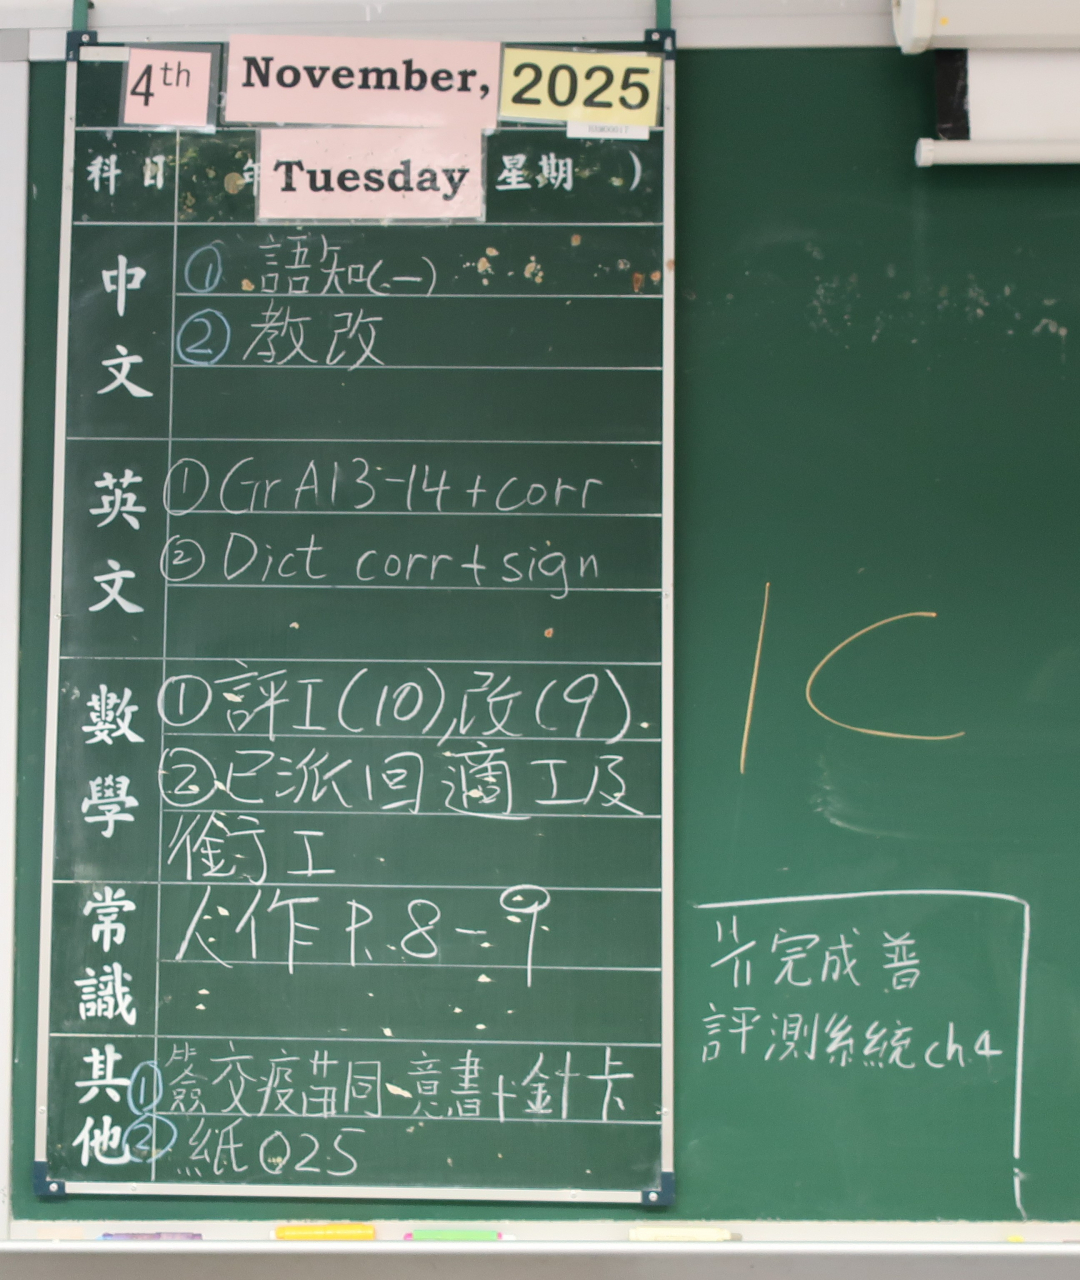 4th November, 2025
科目 年 Tuesday 星期 )
中文
① 語知(一)
② 教改
英文
① Gr A13-14 + corr
② Dict corr + sign
數學
① 評工(10),改(9).
② 已派回適工及
銜工
常識
作 P.8-9
其他
① 簽交疫苗同意書+針卡
② 紙025
1C
11/11 完成普
評測系統 ch.4